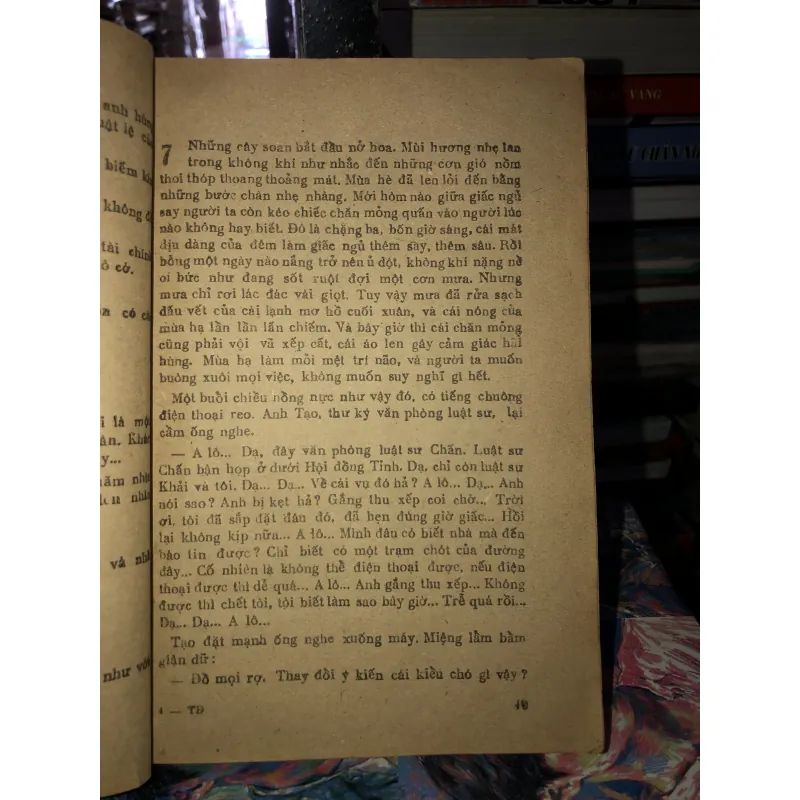 anh hùng
biếm
không
tài chính
ô cớ.
có
là một
Khán
y...
năm
và
như
VANG
7 Những cây soan bắt đầu nở hoa. Mùi hương nhẹ lan
trong không khí như nhắc đến những cơn gió nồm
thoi thóp thoang thoảng mát. Mùa hè đã len lỏi đến bằng
những bước chân nhẹ nhàng. Mới hôm nào giữa giấc ngủ
say người ta còn kéo chiếc chăn mỏng quấn vào người lúc
nào không hay biết. Đó là chặng ba, bốn giờ sáng, cái mát
dịu dàng của đêm làm giấc ngủ thêm say, thêm sâu. Rồi
bỗng một ngày nào nắng trở nên ủ dột, không khí nặng nề
oi bức như đang sốt ruột đợi một cơn mưa. Nhưng
mưa chỉ rơi lác đác vài giọt. Tuy vậy mưa đã rửa sạch
dấu vết của cái lạnh mơ hồ cuối xuân, và cái nóng của
mùa hạ lần lần lấn chiếm. Và bây giờ thì cái chăn mỏng
cũng phải vội vã xếp cất, cái áo len gây cảm giác hãi
hùng. Mùa hạ làm mỏi mệt trí não, và người ta muốn
buông xuôi mọi việc, không muốn suy nghĩ gì hết.
Một buổi chiều nồng nực như vậy đó, có tiếng chuông
điện thoại reo. Anh Tạo, thư ký văn phòng luật sư, lại
cầm ống nghe.
— A lô... Dạ, đây văn phòng luật sư Chấn. Luật sư
Chấn bận họp ở dưới Hội đồng Tỉnh. Dạ, chỉ còn luật sư
Khải và tôi. Dạ... Dạ... Về cái vụ đó hả? A lô... Dạ... Anh
nói sao? Anh bị kẹt hả? Gắng thu xếp coi chớ... Trời
ơi, tôi đã sắp đặt đâu đó, đã hẹn đúng giờ giấc... Hồi
lại không kịp nữa... A lô... Mình đâu có biết nhà mà đến
báo tin được? Chỉ biết có một trạm chót của đường
dây... Cố nhiên là không thể điện thoại được, nếu điện
thoại được thì dễ quá... A lô... Anh gắng thu xếp... Không
được thì chết tôi, tôi biết làm sao bây giờ... Trễ quá rồi...
Dạ... Dạ... A lô...
Tạo đặt mạnh ống nghe xuống máy. Miệng lẩm bẩm
giận dữ:
— Đồ mọi rợ. Thay đổi ý kiến cái kiểu chó gì vậy?
4 — TĐ
49